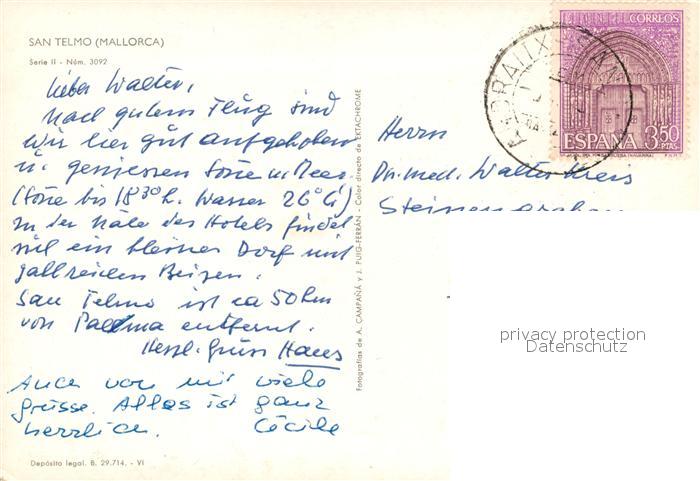 SAN TELMO (MALLORCA)
Serie II - Núm. 3092
Lieber Walter,
Nach gutem Flug sind
wir hier gut aufgehoben
u. geniessen Sonne u. Meer
(Sonne bis 18 30 h. Wasser 26° C)
In der Nähe des Hotels findet
sich ein kleines Dorf mit
zahlreichen Beizen.
San Telmo ist ca 50 km
von Palma entfernt.
Herzl. Gruss Hans
Auch von mir viele
grüsse. Alles ist ganz
herrlich. Cécile
Depósito legal. B. 29.714. - VI
Fotografías de A. CAMPAÑÁ y J. PUIG-FERRÁN - Color directo de EKTACHROME
CORREOS
ESPAÑA 3,50
PTAS
Herrn
Dr. med. Walter
privacy protection
Datenschutz